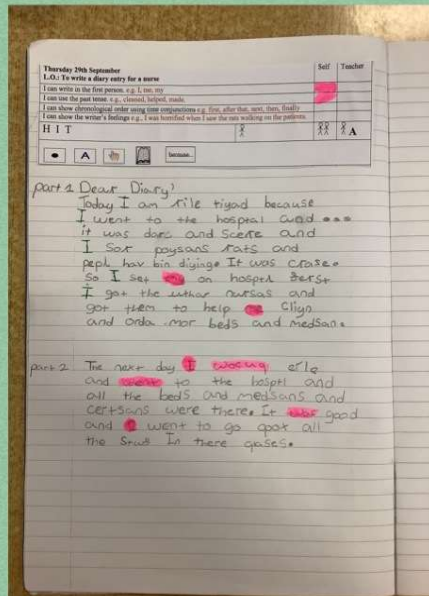 Thursday 29th September
Self Teacher
L.O.: To write a diary entry for a nurse
I can write in the first person. e.g. I, me, my
I can use the past tense. e.g., cleaned, helped, made.
I can show chronological order using time conjunctions e.g. first, after that, next, then, finally
I can show the writer's feelings e.g., I was horrified when I saw the rats walking on the patients.
H I T
A
A
because...
part 1 Dear Diary,
Today I am rile tiyad because
I went to the hosptal and ...
it was darc and Scere and
I Sor paysans rats and
pepl hav bin diying. It was crase.
So I set on hosptl ferst
I got the uthar nursas and
got them to help cliyn
and orda mor beds and medsan.
part 2 The next day I wocup erle
and went to the hosptl and
all the beds and medsans and
certsans were there. It was good
and I went to go poot all
the Stuf In there plases.